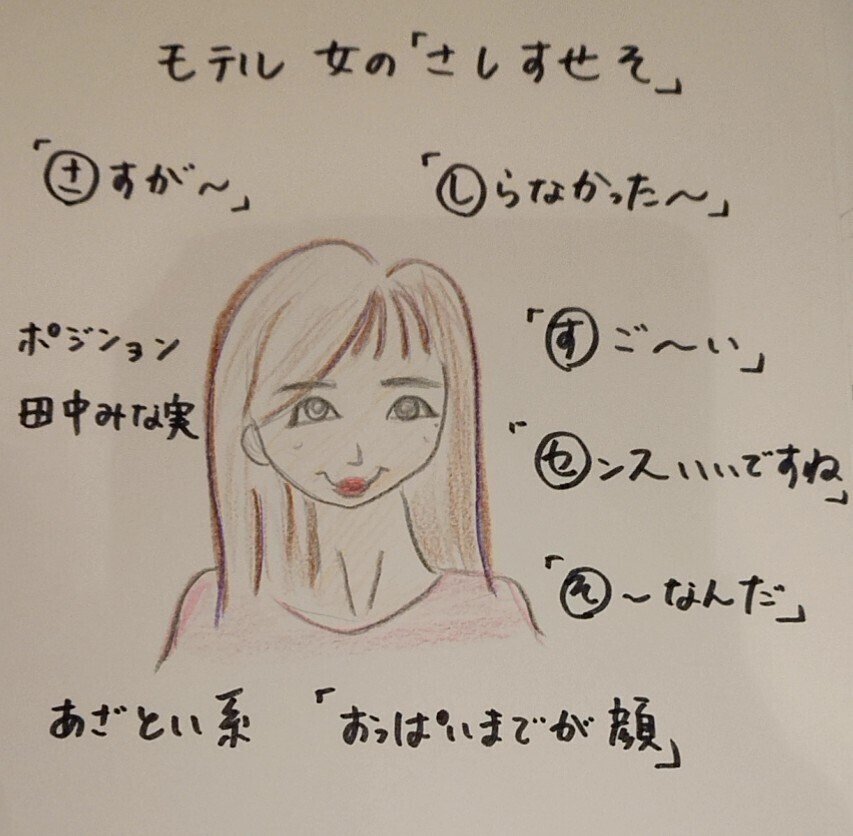 モテル 女の「さしすせそ」
「さすが～」
「しらなかった～」
ポジション
田中みな実
「すご～い」
「センスいいですね」
「そ～なんだ」
あざとい系 「おっぱいまでが顔」